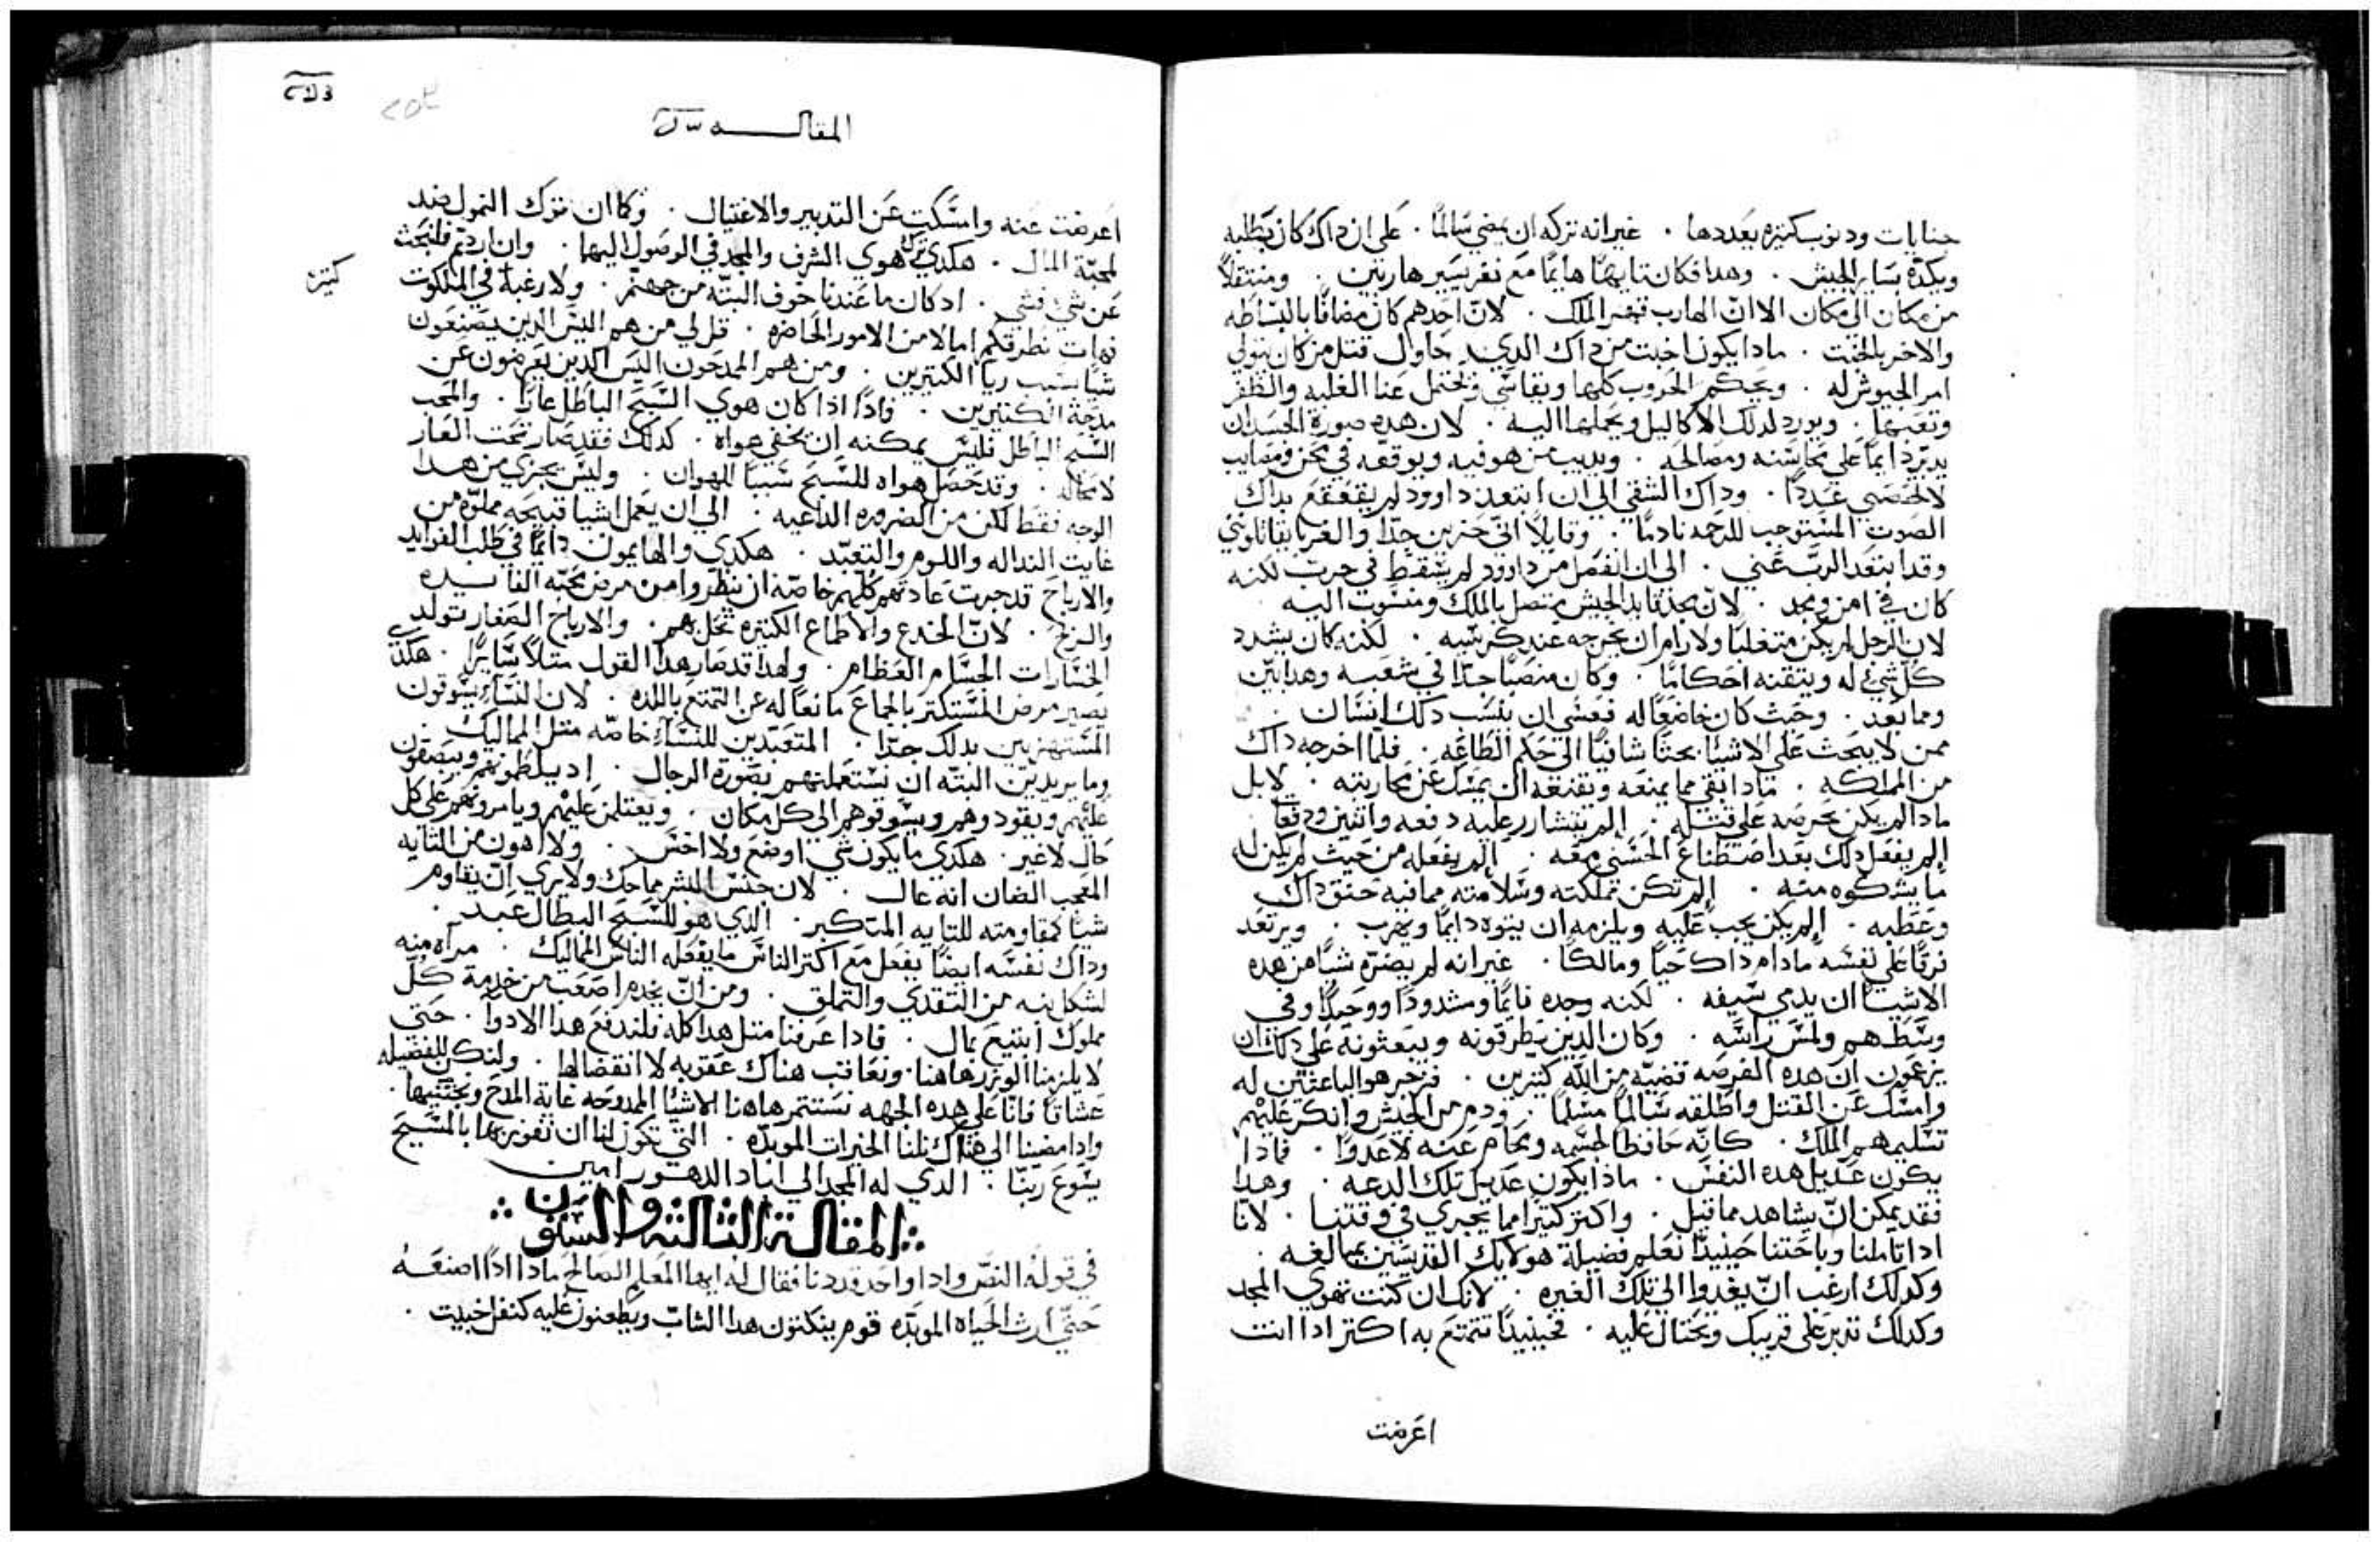 جنايات ودنوب كتيره بعددها . غير انه تركه ان يمضي سالمًا . على ان داك كان يطلبه
ويكدّه بساير الجيش . وهدا فكان تايهًا هايمًا مع نفر يسير هاربين . ومنتقلاً
من مكان الى مكان الا ان الهارب قهر الملك . لان احدهم كان مضافًا بالبساطه
والاخر بالخبت . مادا يكون اخبت من داك الدي حاول قتل من كان يتولي
امر الجيوش له . ويحكم الحروب كلها ويقاسي ويحتمل عنا الغلبه والظفر
وتعبها . ويورد لدلك الاكاليل ويحملها اليه . لان هده صورة الحسد ان
يدبّر دايمًا على محاسنه ومصالحه . ويديب من هو فيه ويوقعه في محن ومصايب
لا تحصي عددًا . وداك الشقي الي ان ابتعد داوود لم يقعقع بداك
الصوت المستوجب للرحمه نادمًا . وقايلاً اني حزين جدًّا والغربا يقاتلوني
وقد ابتعد الربّ عني . الى ان انفصل من داوود لم يسقط في حرب لكنه
كان في امن ومجد . لان مجد قايد الجيش متصل بالملك ومنسوب اليه .
لان الرجل لم يكن متغلبًا ولا رام ان يخرجه عند كرسيه . لكنه كان يشدد
كل شيء له ويتقنه احكامًا . وكان منصبًّا جدًا في شعبه وهدا بيّن
ومما بعد . وحيث كان خاضعًا له فعسي ان ينسب دلك انسان .
ممن لا يبحث على الاشيا بحثًا شافيًا الى حكم الطاعه . فلما اخرجه داك
من المملكه . مادا بقي مما يمنعه ويقنعه ان يمسك عن محاربته . لا بل
مادا لم يكن يحرضه على قتله . الم يتشارر عليه دفعه واتنتين ودفعًا .
الم يفعل دلك بعد اصطناع الحسني معه . الم يفعله من حيث لم يكن له
ما يشكوه منه . الم تكن مملكته وسلامته مما فيه حنق داك
وعطبه . الم يكن يجب عليه ويلزمه ان يتوه دايمًا ويهرب . ويرتعد
فزعًا على نفسه ما دام داك حيًا ومالكًا . غير انه لم يضره شيا من هده
الاشيا ان يدمي سيفه . لكنه وجده نايمًا ومشدودًا ووحيدًا وفي
وسطهم ولمس راسه . وكان الدين يطرقونه ويبعتونه على دلك ان
يزعمون ان هده الفرصه قضيّه من الله كتيرين . فزجر هو الباعتين له
وامسك عن القتل واطلقه سالمًا مسلمًا . ودم من الجيش وانكر عليهم
تسليمهم الملك . كانّه حافظًا لجسمه ومحام عنه لا عدوًا . فمادا
يكون عديل هده النفس . مادا يكون عديل تلك الدعه . وهدا
فقد يمكن ان يشاهد مما قيل . واكتر كتيرًا مما يجري في وقتنا . لانّا
ادا تاملنا وباحتنا حينيدًا نعلم فضيلة هولايك القديسين بمبالغه .
وكدلك ارغب ان يغدوا الى تلك الغيره . لانك ان كنت تهوي المجد
وكدلك تدبر على قريبك وتحتال عليه . فحينيدًا تتمتع به اكتر ادا انت
اعرضت
المقاله
اعرضت عنه وامسكت عن التدبير والاغتيال . وكما ان ترك التمول ضد
لمحبّة المال . هكدي ترك هوي الشرف والمجد في الوصول اليهما . وان اردتم فلنبحث
عن شي فشي . اد كان ما عندنا خوف البتّه من جهنم . ولا رغبة في الملكوت
كتيره
فهات نطرقكم امالا من الامور الحاضره . قل لي من هم اليس الدين يصنعون
شيا بسبب ريا الكتيرين . ومن هم الممدحون اليس الدين يعرضون عن
مدحة الكتيرين . فادًا ادا كان هوي السبح الباطل عارًا . والمحب
السبح الباطل فليس يمكنه ان يخفي هواه . كدلك فقد صار تحت العار
لا محاله . وقد حصل هواه للسبح سببًا للهوان . وليس يجزي من هدا
الوجه فقط لكن من الضروره الداعيه . الى ان يعمل اشيا قبيحه مملوّه من
غايت الندالة واللوم والتعبّد . هكدي والهايمون دايمًا في طلب الفوايد
والارباح قد جرت عادتهم كلهم خاصّه ان ينظروا من مرض محبّه الفايده
والربح . لان الخدع والاطماع الكتيره تخل بهم . والارباح الصغار تولد
الخسارات الجسام العظام . ولهدا قد صار هدا القول متلاً سايرًا . هكدي
يصير مرض المستكتر بالجماع مانعًا له عن التمتع باللده . لان النساء يسوقون
المستهزيين بدلك جدًا . المتعبدين للنساء خاصّه متل المماليك .
وما يريدين البتّه ان نستعملهم بصورة الرجال . اد يلطمونهم ويبصقون
عليهم ويقودوهم ويسوقوهم الى كل مكان . ويعتلين عليهم ويامرونهم على كل
حال لا غير . هكدي ما يكون شي اوضع ولا اخس . ولا اهون من التايه
المعجب الضان انه عال . لان جنس البشر مماحك ولا يري ان يقاوم
شيا كمقاومته للتايه المتكبر . الدي هو للسبح البطال عبد .
وداك نفسه ايضًا يفعل مع اكتر الناس ما يفعله الناس المماليك . مراه منه
لشكل بنيه من التقدي والتملق . ومن انّ يخدم اصعب من خدمة كل
مملوك ابتيع بمال . فادا عرفنا متل هدا كله فلندفع هدا الادوا . حتى
لا يلزمنا الوزر هاهنا . ونعاقب هناك عقوبه لا انقضا لها . ولنكن للفضيله
عشاقا فانّا على هده الجهه نستتمر هاهنا الاشيا الممدوحه غاية المدح ونجتنيها .
وادا مضينا الى هناك نلنا الخيرات الموبدّه . التي تكون لنا ان نفوز بها بالمسيح
يسوع ربنا . الدي له المجد الى اباد الدهور امين
المقالة الثالثة والستون
في قوله النصّ وادا واحد قد دنا فقال له ايها المعلم الصالح مادا ادًا اصنعه
حتي ارث الحياه الموبدّه قوم ينكتون هدا الشابّ ويطعنون عليه كنفل خبيت .